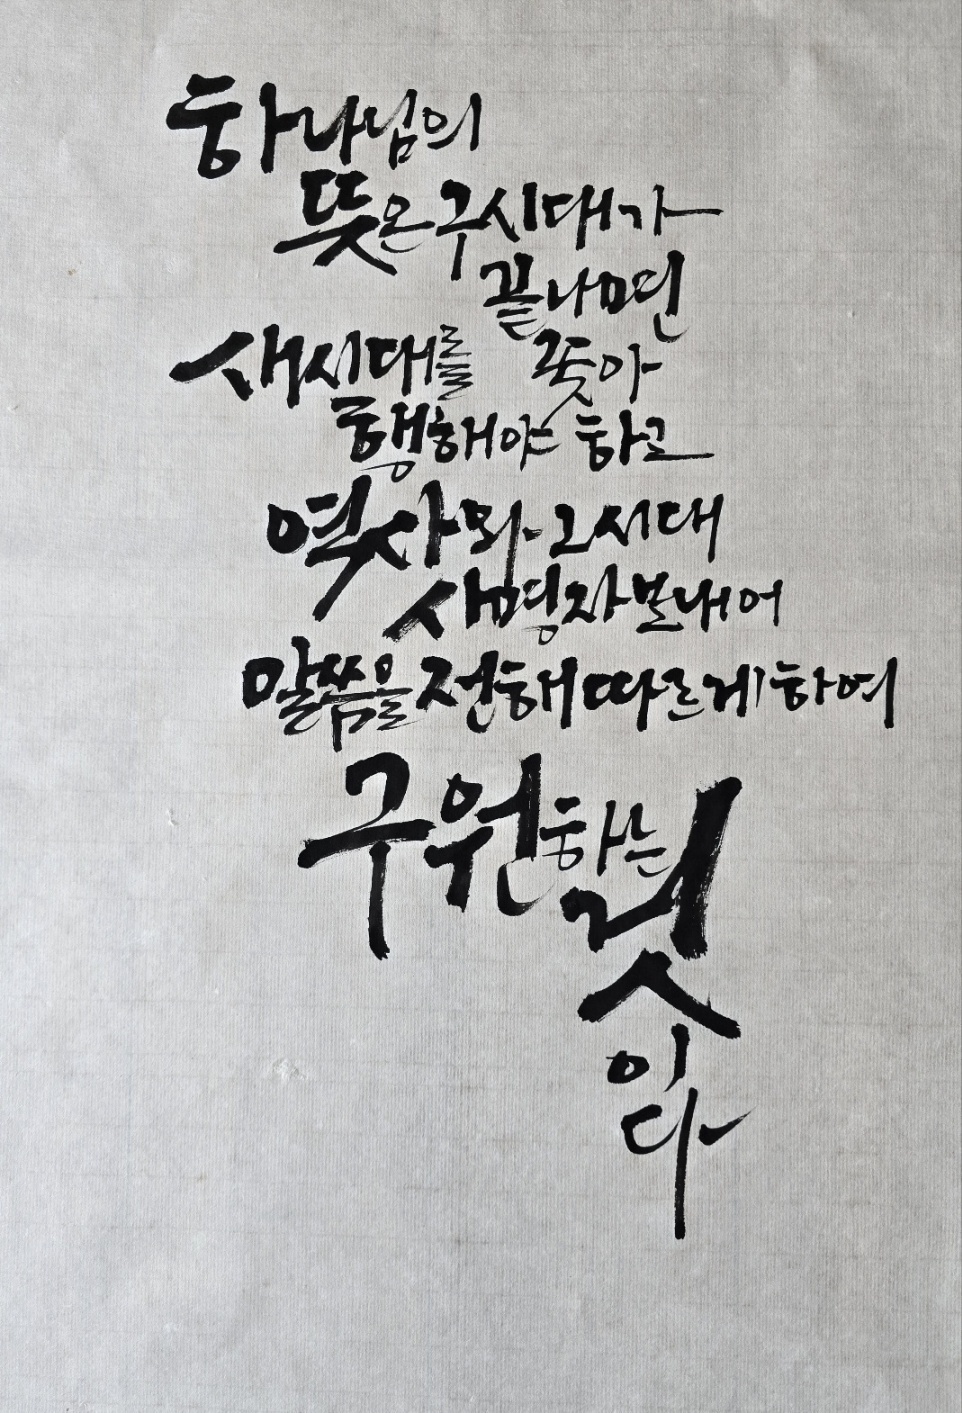 하나님의
뜻은 구시대가
끝나면
새시대를 좇아
행해야 하고
역사와 그시대
사명자 보내어
말씀을 전해 따르게 하여
구원하는
것
이다